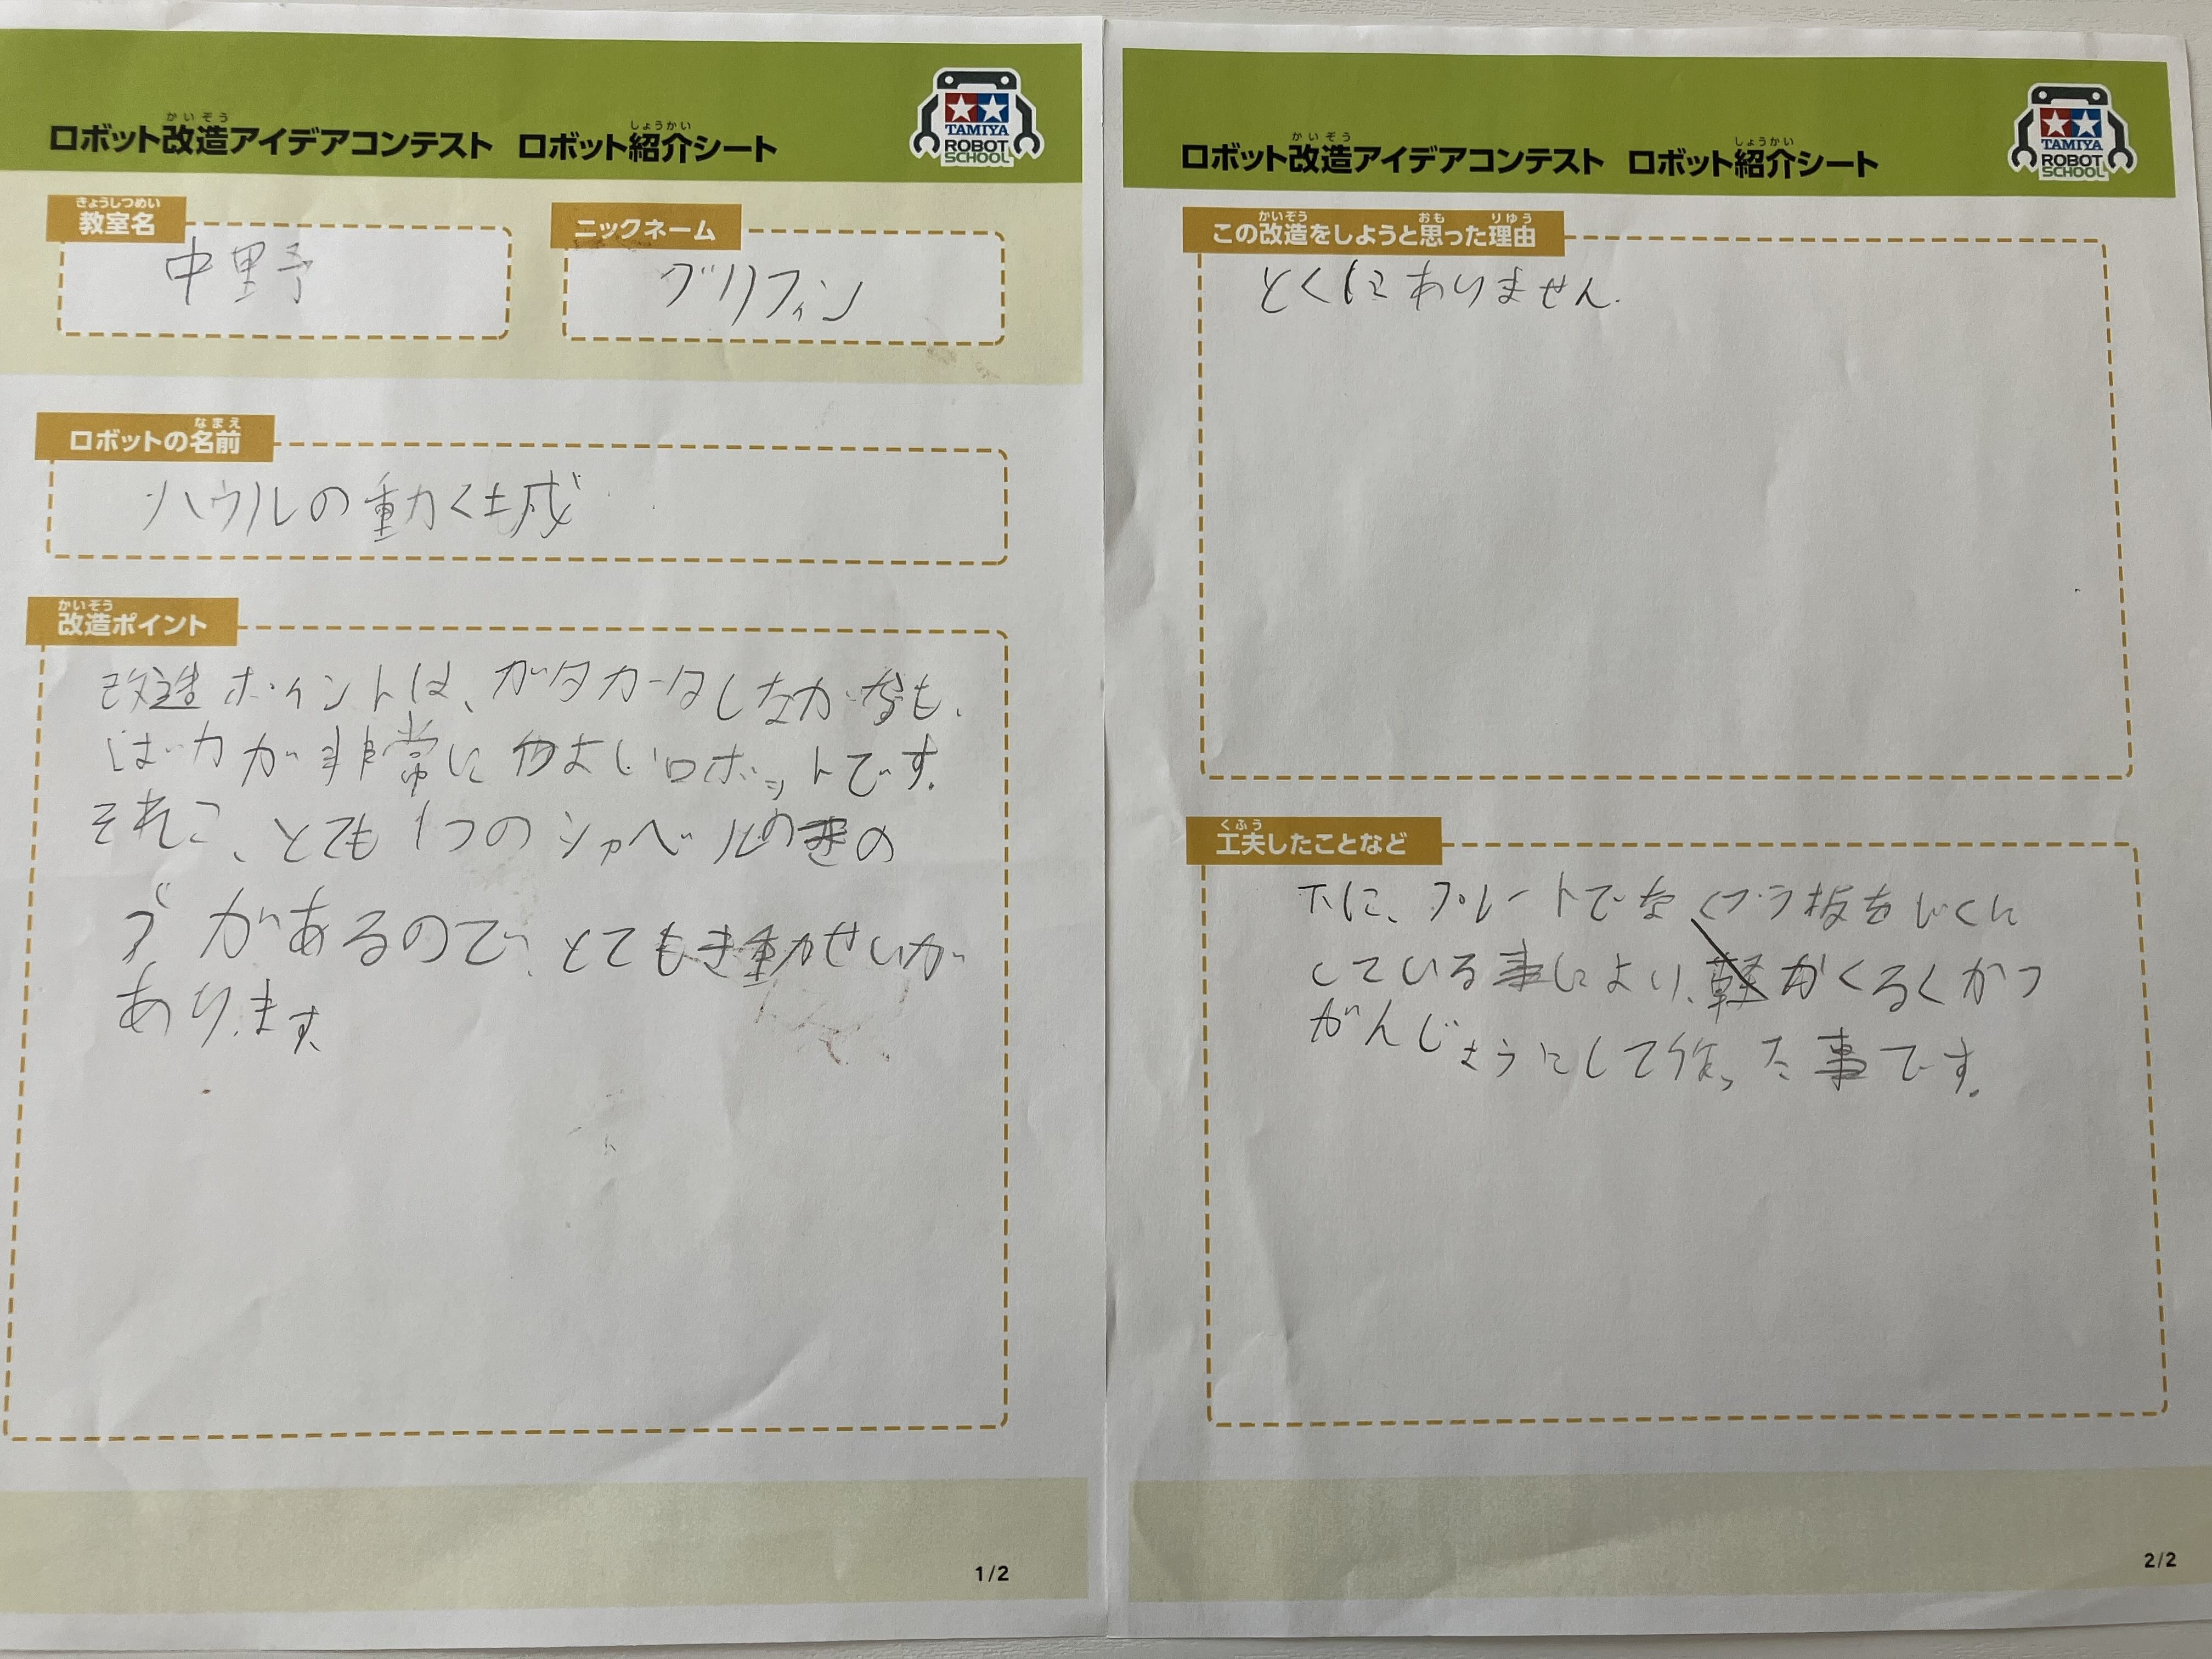 かいぞう しょうかい
ロボット改造アイデアコンテスト ロボット紹介シート
TAMIYA
ROBOT
SCHOOL
きょうしつめい
教室名
中里予
ニックネーム
グリフィン
なまえ
ロボットの名前
ハウルの動く城
かいぞう
改造ポイント
改造ポイントは、ガタガタしながらも、
ば力が非常につよいロボットです。
それに、とても1つのシャベルの
があるので、とてもき動せいが
あります。
1/2
かいぞう しょうかい
ロボット改造アイデアコンテスト ロボット紹介シート
TAMIYA
ROBOT
SCHOOL
かいぞう おも りゆう
この改造をしようと思った理由
とくにありません.
くふう
工夫したことなど
下に、プレートでなくプラ板をじくに
している事により、かるくかつ
がんじょうにして作った事です。
2/2